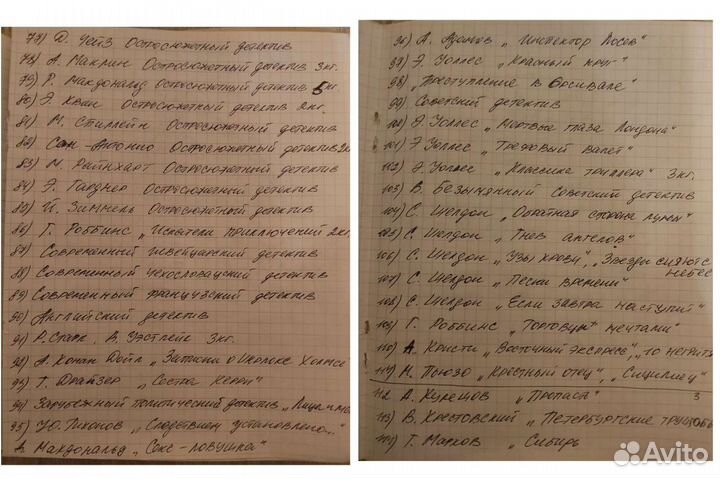 77) Д. Чейз Остросюжетный детектив
78) А. Маклин Остросюжетный детектив 3кг.
79) Р. Макдональд Остросюжетный детектив 5кг.
80) Э. Квин Остросюжетный детектив 2кг.
81) М. Спиллейн Остросюжетный детектив
82) Сан-Антонио Остросюжетный детектив 2к
83) М. Райнхарт Остросюжетний детектив
84) Э. Гарднер Остросюжетный детектив
85) Й. Зиммель Остросюжетный детектив
86) Г. Роббинс „Искатели приключений" 2кг.
87) Современный швейцарский детектив
88) Современный чехословацкий детектив
89) Современный французский детектив
90) Английский детектив
91) Р. Старк, Д. Уэстлейк 3кг.
92) А. Конан Дойл „Записки о Шерлоке Холмсе
93) Т. Драйзер „Сестра Керри"
94) Зарубежный политический детектив „Лица и ма
95) Ю. Тихонов „Следствием установлено..."
Д. Макдональд „Секс-ловушка"
96) А. Адамов „Инспектор Лосев"
97) Э. Уоллес „Красный круг"
98) „Преступление в Орсивале"
99) Советский детектив
100) Э. Уоллес „Мертвые глаза Лондона"
101) Э. Уоллес „Трефовый валет"
102) Э. Уоллес „Классика триллера" 3кг.
103) В. Безымянный Советский детектив
104) С. Шелдон „Обратная сторона луны"
105) С. Шелдон „Гнев ангелов"
106) С. Шелдон „Узы крови", „Звезды сияют с небес
107) С. Шелдон „Пески времени"
108) С. Шелдон „Если завтра наступит"
109) Г. Роббинс „Торговцы мечтами"
110) А. Кристи „Восточный экспресс", „10 негритя
111) М. Пьюзо „Крестный отец", „Сицилиец"
112 А. Кузнецов „Пропасть" 3
113) В. Крестовский „Петербургские трущобы
114) Г. Марков „Сибирь"
Avito